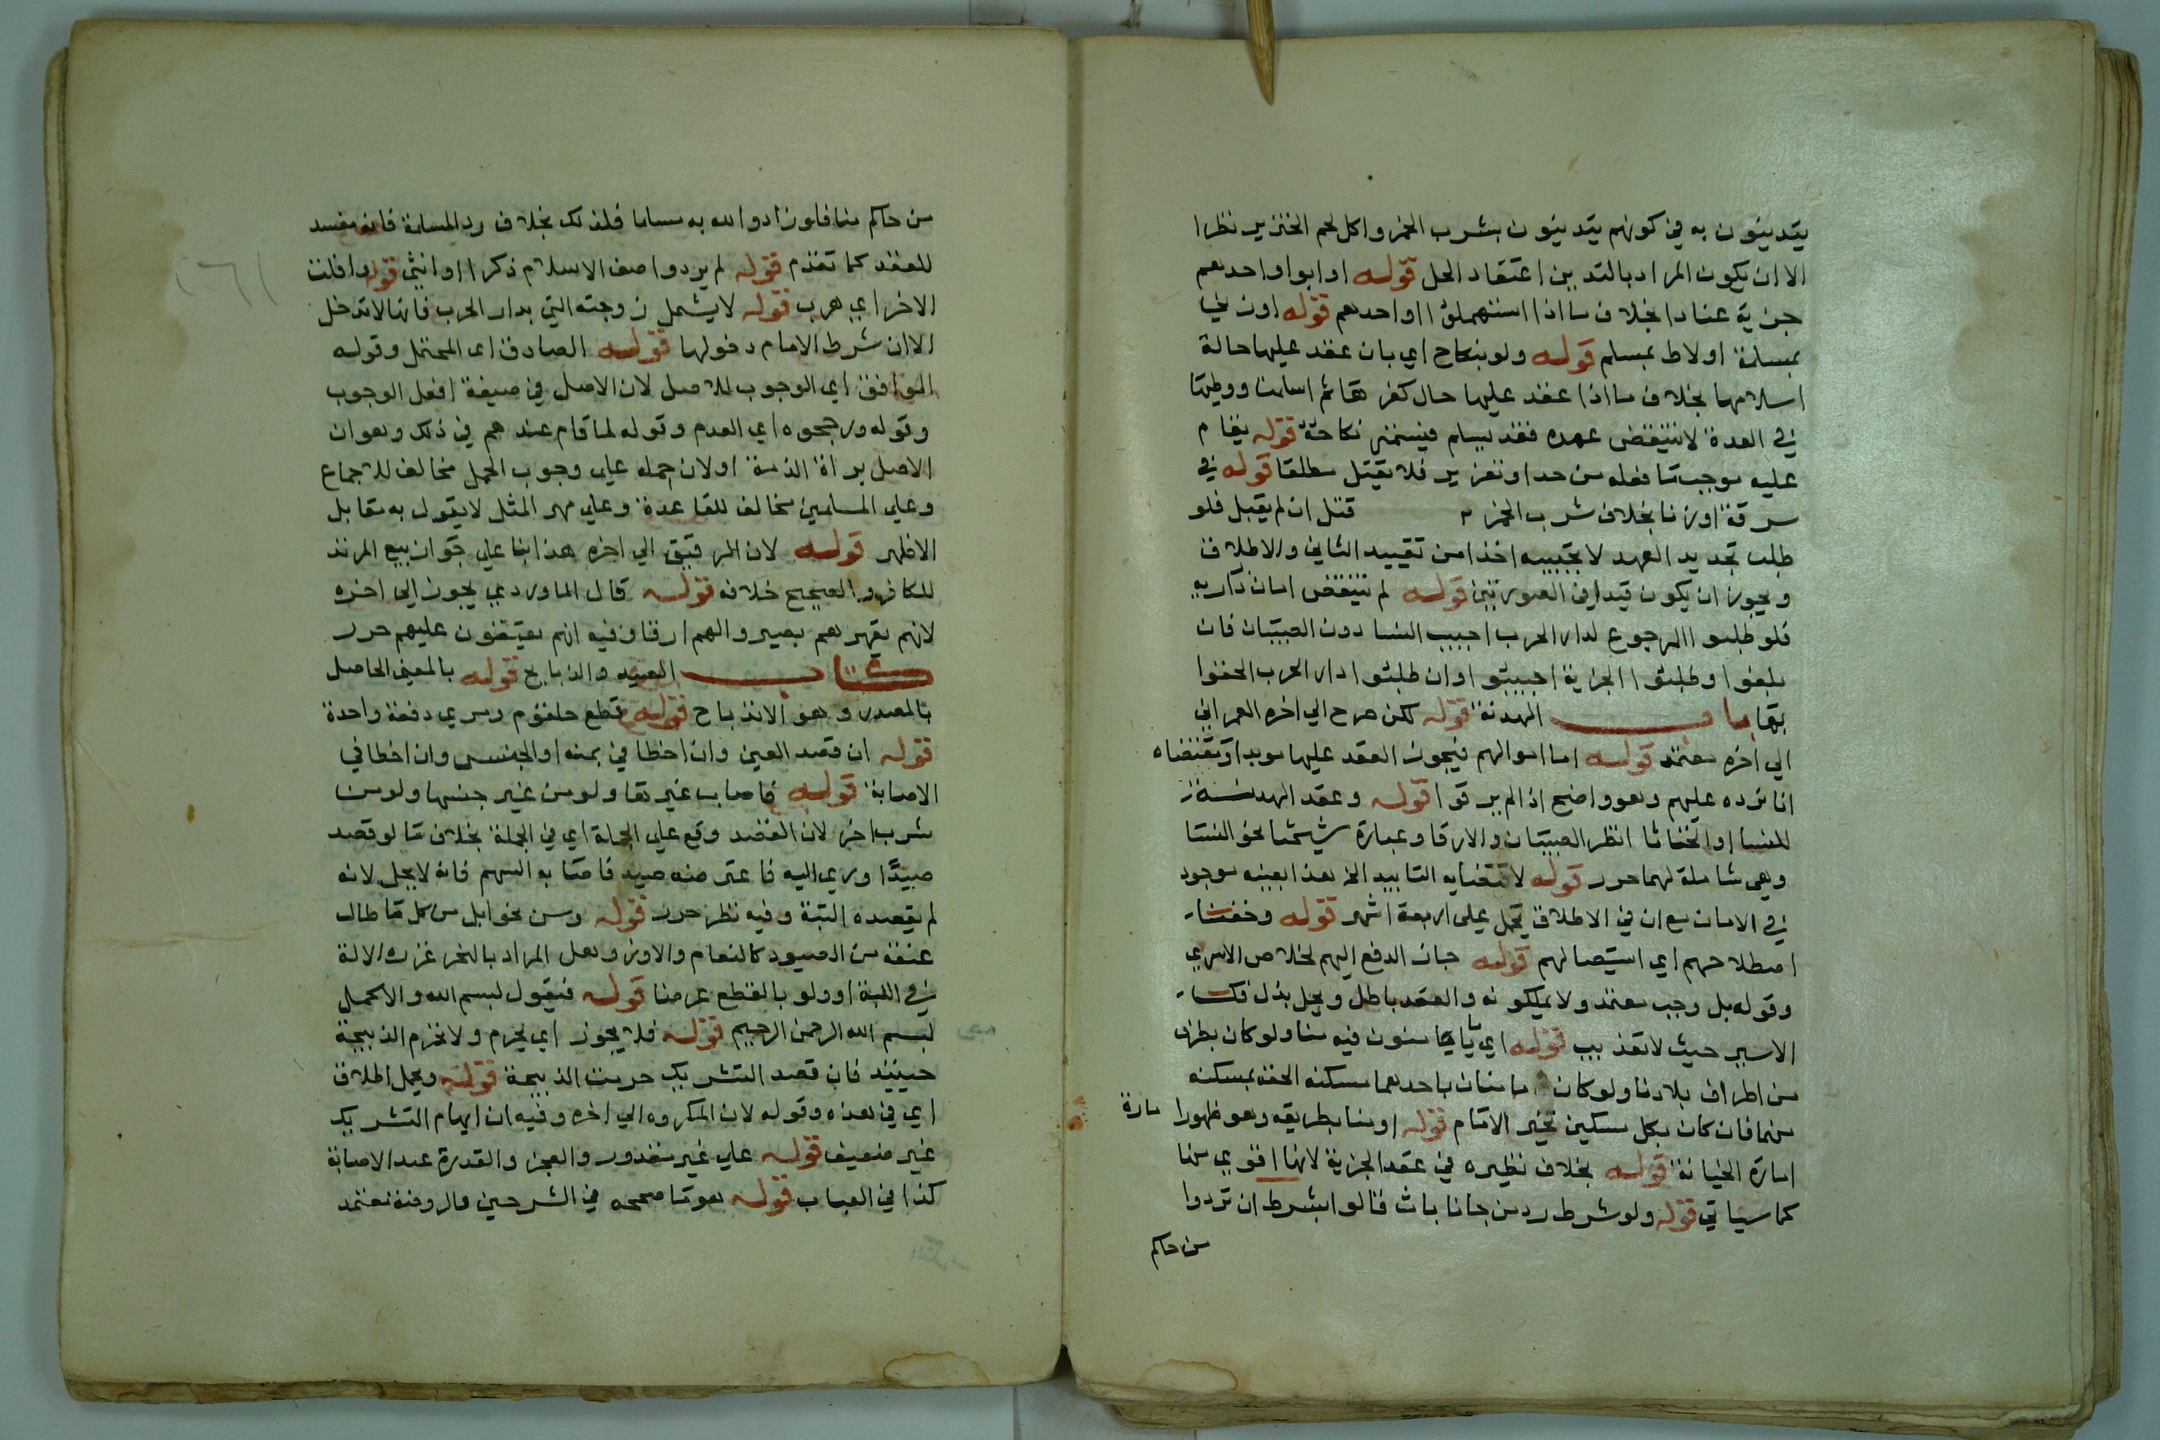 يتدينون به في كونهم يتدينون بشرب الخمر واكل لحم الخنزير نظرا
الا ان يكون المراد بالتدين اعتقاد الحل قوله او ابوا واحدهم
جزية عنادا بخلاف ما اذا استمهلوا او احدهم قوله او زنى
بمسلمة او لاط بمسلم قوله ولو بنكاح اي بان عقد عليها حالة
اسلامها بخلاف ما اذا عقد عليها حال كفرها ثم اسلمت ووطيها
في العدة لا ينتقض عهده فقد يسلم فيستمر نكاحه قوله يقام
عليه موجب ما فعله من حد او تعزير فلا يقتل مطلقا قوله في
سرقة او زنا بخلاف شرب الخمر قتل ان لم يقبل فلو
طلب تجديد العهد لا نجيبه اخذا من تقييد الثاني والاطلاق
ويجوز ان يكون قيدا في الصورتين قوله لم ينتقض امان ذراريه
فلو طلبوا الرجوع لدار الحرب اجيب النسا دون الصبيان فان
بلغوا وطلبوا الجزية اجيبوا وان طلبوا دار الحرب الحقوا
بها باب الهدنة قوله لكن صرح الى اخره العمراني
الى اخره معتمد قوله اما اموالهم فيجوز العقد عليها موبدا
انا نرده عليهم وهو واضح اذا لم يرقوا قوله وعقد الهدنة
للنسا او الخناثا انظر الصبيان والارقا وعبارة شيخنا نحو النسا
وهي شاملة لهما حرر قوله لاقتضايه التابيد الخ هذا بعينه موجود
في الامان مع ان في الاطلاق يحمل على اربعة اشهر قوله وخفنا
اصطلاحهم اي استيصالهم قوله جاز الدفع اليهم لخلاص الاسرى
وقوله بل وجب معتمد ولا يملكونه والعقد باطل ويحل بذل فكا
الاسير حيث لا تعذيب قوله اي ما يامنون فيه منا ولو كان بطرف
من اطراف بلادنا ولو كان مامنان باحدهما مسكنه الحقه بمسكنه
منهما فان كان بكل مسكن تخير الامام قوله او منا بطريقه وهو ظهورا مارة
امارة الخيانة قوله بخلاف نظيره في عقد الجزية لانها اقوى منا
كما سياتي قوله ولو شرط رد من جانا بان قالوا بشرط ان تردوا
من حاكم
من حاكم منا فلو زادوا به مسلما فلذلك بخلاف رد المسلمة فانه مفسد
للعقد كما تقدم قوله لم يرد واصف الاسلام ذكرا او انثى قوله وافلت
الاخر اي هرب قوله لا يشمل زوجته التي بدار الحرب فانها لا تدخل
الا ان شرط الامام دخولها قوله الصادق اي المحتمل وقوله
الموافق اي الوجوب للاصل لان الاصل في صيغة افعل الوجوب
وقوله ورجحوه اي العدم وقوله لما قام عندهم في ذلك وهو ان
الاصل براة الذمة او لان حمله على وجوب الحمل مخالف للاجماع
وعلى المسلمين مخالف للقاعدة وعلى مهر المثل لا يقول به مقابل
الاظهر قوله لان الرقيق الى اخره هذا بنا على جواز بيع المرتد
للكافر والصحيح خلافه قوله قال الماوردي يجوز الى اخره
لانهم بقهرهم يصير والهم ارقا وفيه انهم يعتقون عليهم حرر
كتاب الصيد والذبايح قوله بالمعنى الحاصل
بالمصدر وهو الانذباح قوله قطع حلقوم ومري دفعة واحدة
قوله ان قصد العين وان اخطا في ظنه او الجنس وان اخطا في
الاصابة قوله فاصاب غيرها ولو من غير جنسها ولو من
سرب اخر لان القصد وقع على الجملة اي في الجملة بخلاف ما لو قصد
صيدا ورمى اليه فاعترضه صيد فاصابه السهم فانه لا يحل لانه
لم يقصده البتة وفيه نظر حرر قوله وسن نحو ابل من كل ما طال
عنقه من الصيود كالنعام والاوز وهل المراد بالنحر غرز الالة
في اللبة او ولو بالقطع عرضا قوله فيقول بسم الله والاكمل
بسم الله الرحمن الرحيم قوله فلا يجوز اي يحرم ولا تحرم الذبيحة
حينيذ فان قصد التشريك حرمت الذبيحة قوله ويحمل اطلاق
اي في هذه وقوله لان المكروه الى اخره وفيه ان ايهام التشريك
غير ضعيف قوله على غير مقدور والعجز والقدرة عند الاصابة
كذا في العباب قوله هو ما صححه في الشرحين والروضة معتمد